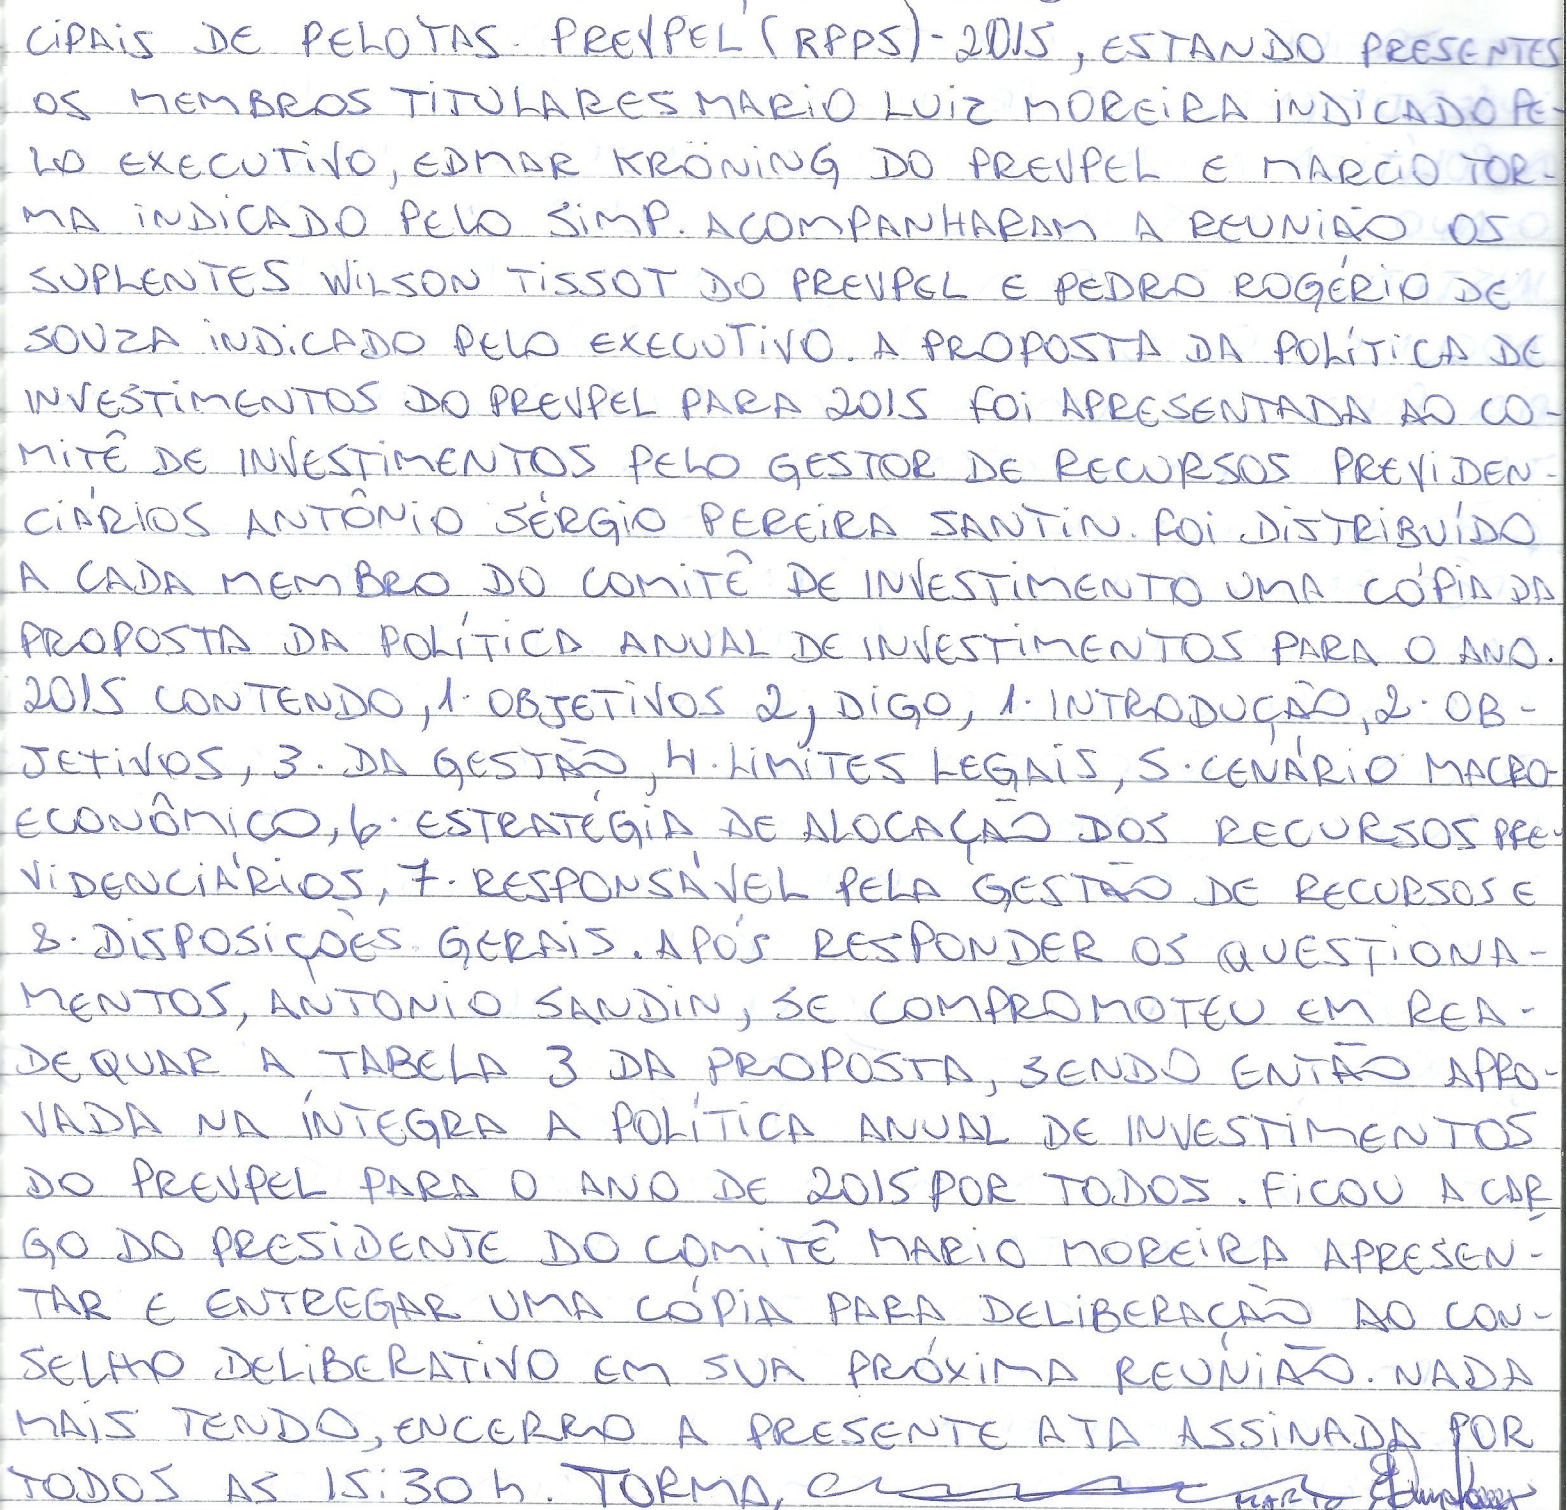 CIPAIS DE PELOTAS - PREVPEL (RPPS) - 2015, ESTANDO PRESENTES
OS MEMBROS TITULARES MARIO LUIZ MOREIRA INDICADO PE-
LO EXECUTIVO, EDMAR KRÖNING DO PREVPEL E MARCIO TOR-
MA INDICADO PELO SIMP. ACOMPANHARAM A REUNIÃO OS
SUPLENTES WILSON TISSOT DO PREVPEL E PEDRO ROGÉRIO DE
SOUZA INDICADO PELO EXECUTIVO. A PROPOSTA DA POLÍTICA DE
INVESTIMENTOS DO PREVPEL PARA 2015 FOI APRESENTADA AO CO-
MITÊ DE INVESTIMENTOS PELO GESTOR DE RECURSOS PREVIDEN-
CIÁRIOS ANTÔNIO SÉRGIO PEREIRA SANTIN. FOI DISTRIBUÍDO
A CADA MEMBRO DO COMITÊ DE INVESTIMENTO UMA CÓPIA DA
PROPOSTA DA POLÍTICA ANUAL DE INVESTIMENTOS PARA O ANO.
2015 CONTENDO, 1. OBJETIVOS 2, DIGO, 1. INTRODUÇÃO, 2. OB-
JETIVOS, 3. DA GESTÃO, 4. LIMITES LEGAIS, 5. CENÁRIO MACRO-
ECONÔMICO, 6. ESTRATÉGIA DE ALOCAÇÃO DOS RECURSOS PRE-
VIDENCIÁRIOS, 7. RESPONSÁVEL PELA GESTÃO DE RECURSOS E
8. DISPOSIÇÕES GERAIS. APÓS RESPONDER OS QUESTIONA-
MENTOS, ANTONIO SANDIN, SE COMPROMOTEU EM REA-
DEQUAR A TABELA 3 DA PROPOSTA, SENDO ENTÃO APRO-
VADA NA ÍNTEGRA A POLÍTICA ANUAL DE INVESTIMENTOS
DO PREVPEL PARA O ANO DE 2015 POR TODOS. FICOU A CAR
GO DO PRESIDENTE DO COMITÊ MARIO MOREIRA APRESEN-
TAR E ENTREGAR UMA CÓPIA PARA DELIBERAÇÃO AO CON-
SELHO DELIBERATIVO EM SUA PRÓXIMA REUNIÃO. NADA
MAIS TENDO, ENCERRO A PRESENTE ATA ASSINADA POR
TODOS AS 15:30 h. TORMA,